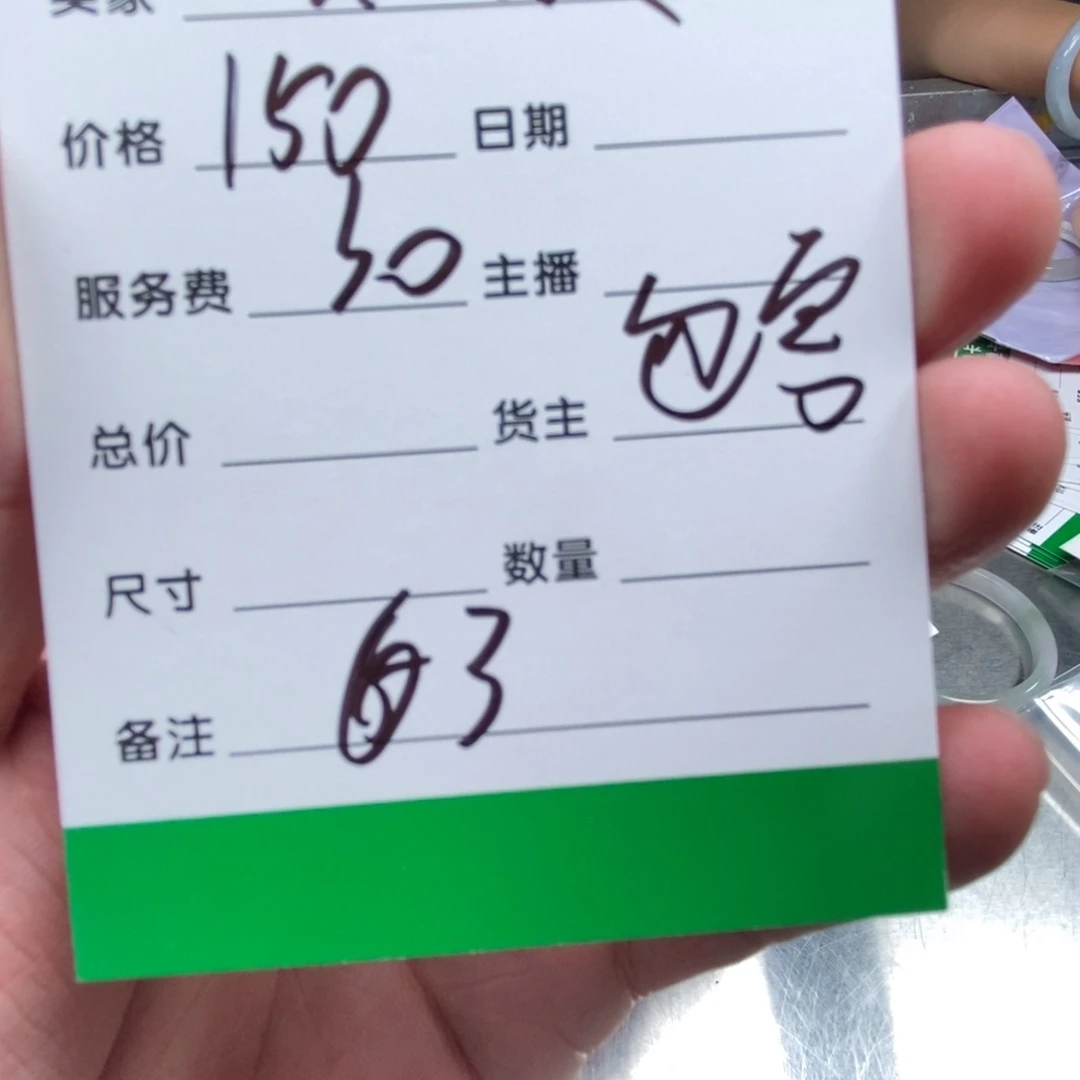 卖家
价格 150 日期
服务费 50 主播
总价 货主 包
尺寸 数量
备注 3